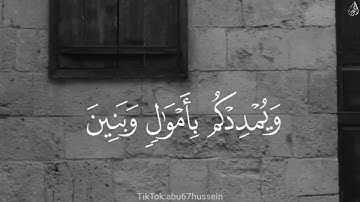 وَيُمْدِدْكُم بِأَمْوَٰلٍ وَبَنِينَ
TikTok:abu67hussein